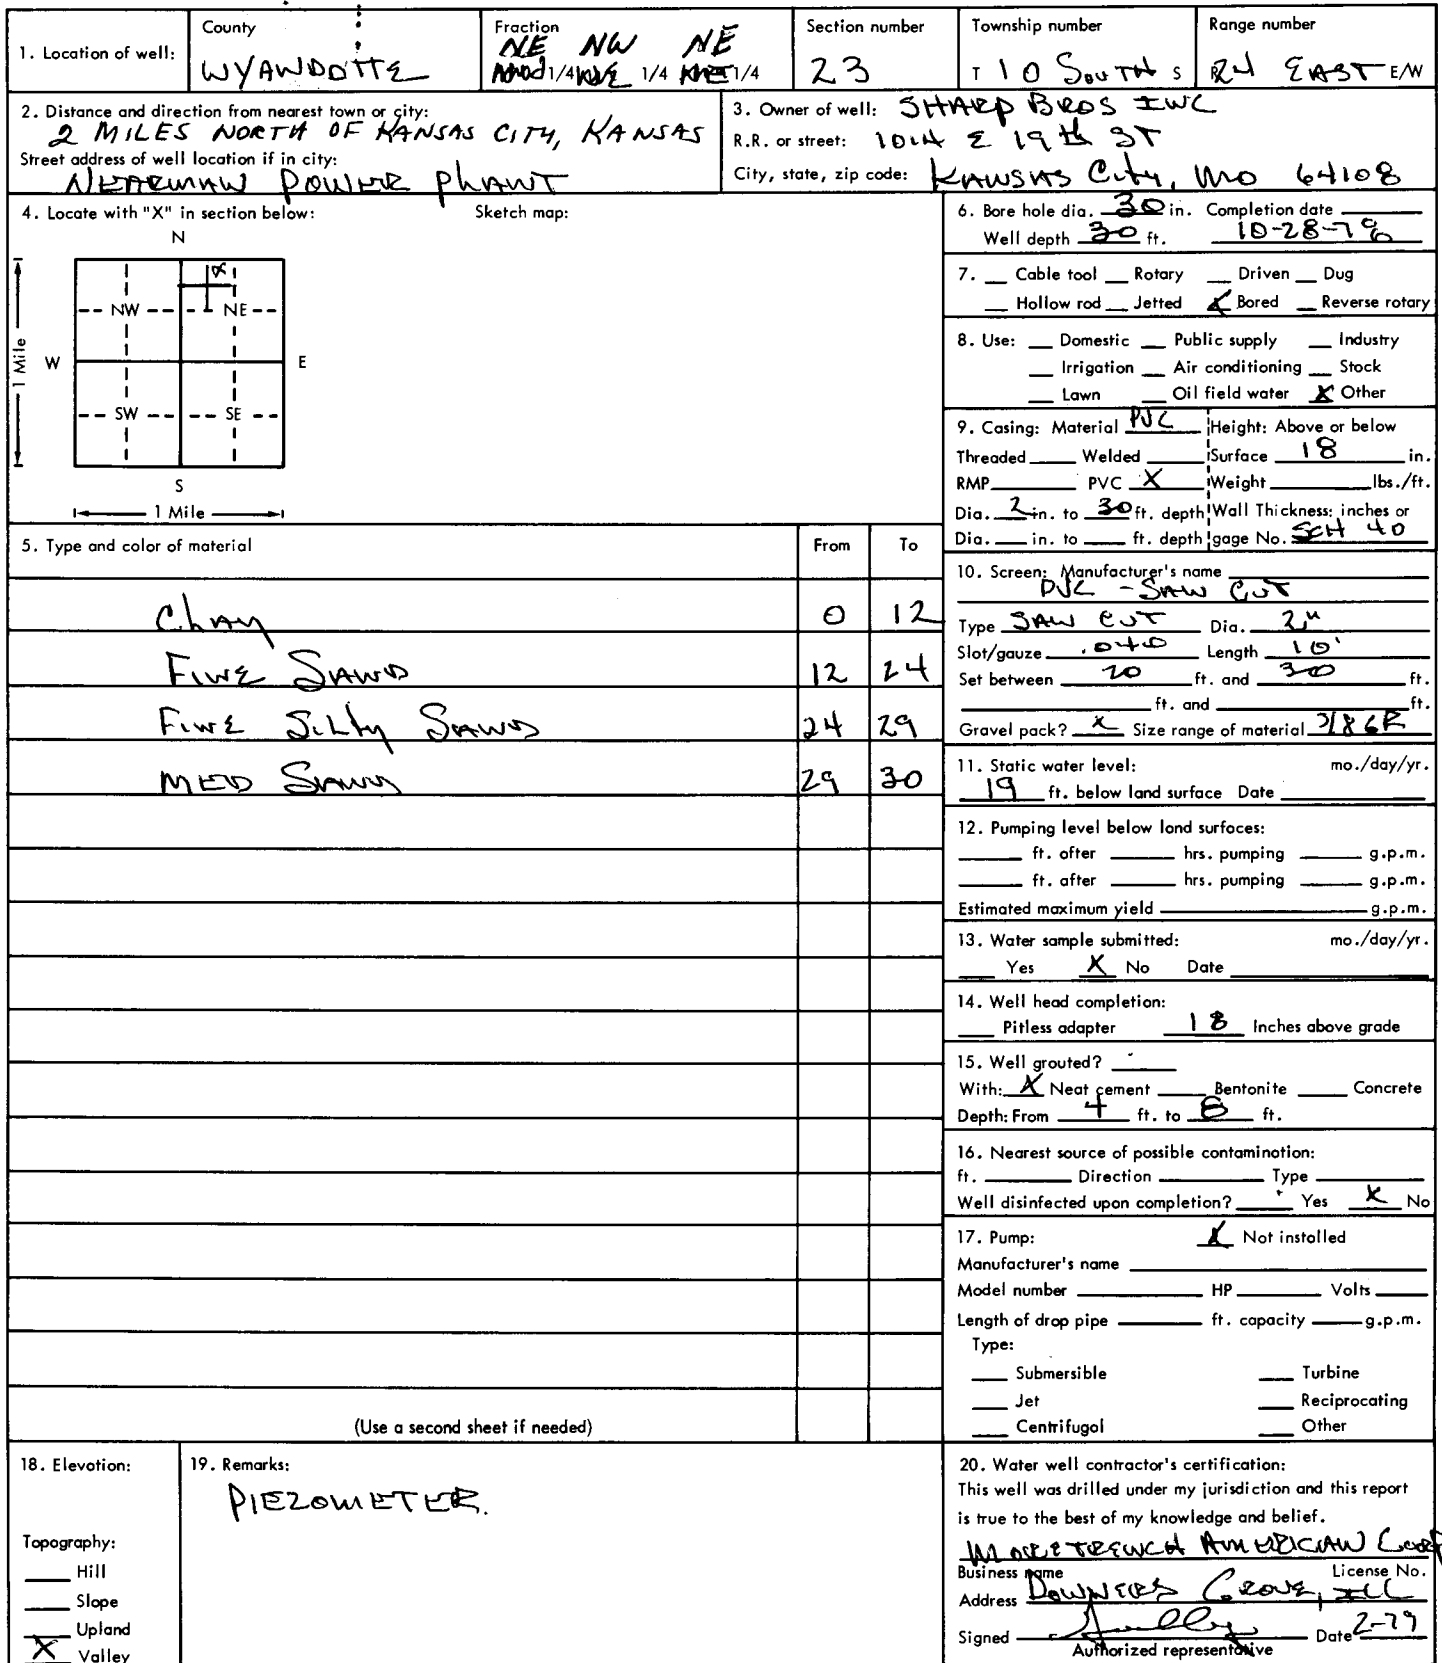 1. Location of well:
County
WYANDOTTE
Fraction
NE NW NE
1/4 1/4 1/4
Section number
23
Township number
T 10 South S
Range number
R 24 EAST E/W
2. Distance and direction from nearest town or city:
2 MILES NORTH OF KANSAS CITY, KANSAS
Street address of well location if in city:
NEARMAN POWER PLANT
3. Owner of well: SHARP BROS INC
R.R. or street: 1014 E 19th ST
City, state, zip code: KANSAS City, MO 64108
4. Locate with "X" in section below:
Sketch map:
N
X
NW NE
W E
SW SE
S
1 Mile
1 Mile
5. Type and color of material From To
Clay 0 12
FINE SAND 12 24
FINE Silty SAND 24 29
MED SAND 29 30
(Use a second sheet if needed)
6. Bore hole dia. 30 in. Completion date
Well depth 30 ft. 10-28-76
7. Cable tool Rotary Driven Dug
Hollow rod Jetted X Bored Reverse rotary
8. Use: Domestic Public supply Industry
Irrigation Air conditioning Stock
Lawn Oil field water X Other
9. Casing: Material PVC Height: Above or below
Threaded Welded Surface 18 in.
RMP PVC X Weight lbs./ft.
Dia. 2 in. to 30 ft. depth Wall Thickness: inches or
Dia. in. to ft. depth gage No. SCH 40
10. Screen: Manufacturer's name
PVC - SAW CUT
Type SAW CUT Dia. 2"
Slot/gauze .040 Length 10'
Set between 20 ft. and 30 ft.
ft. and ft.
Gravel pack? X Size range of material
11. Static water level: mo./day/yr.
19 ft. below land surface Date
12. Pumping level below land surfaces:
ft. after hrs. pumping g.p.m.
ft. after hrs. pumping g.p.m.
Estimated maximum yield g.p.m.
13. Water sample submitted: mo./day/yr.
Yes X No Date
14. Well head completion:
Pitless adapter 18 Inches above grade
15. Well grouted?
With: X Neat cement Bentonite Concrete
Depth: From 4 ft. to 8 ft.
16. Nearest source of possible contamination:
ft. Direction Type
Well disinfected upon completion? Yes X No
17. Pump: X Not installed
Manufacturer's name
Model number HP Volts
Length of drop pipe ft. capacity g.p.m.
Type:
Submersible Turbine
Jet Reciprocating
Centrifugal Other
18. Elevation:
Topography:
Hill
Slope
Upland
X Valley
19. Remarks:
PIEZOMETER.
20. Water well contractor's certification:
This well was drilled under my jurisdiction and this report
is true to the best of my knowledge and belief.
MORETRENCH AMERICAN CORP
Business name License No.
Address DOWNERS GROVE, ILL
Signed Date 2-79
Authorized representative